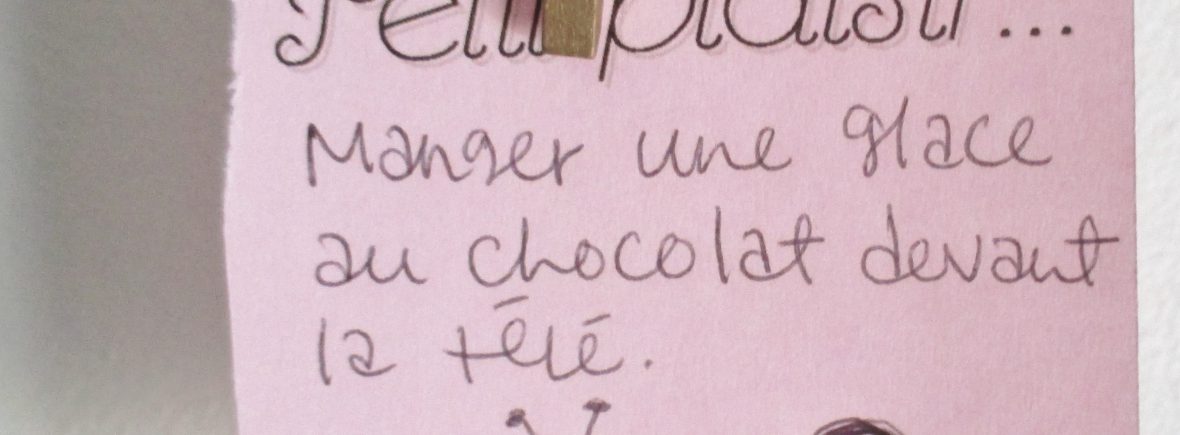 Petit plaisir...
Manger une glace
au chocolat devant
la télé.